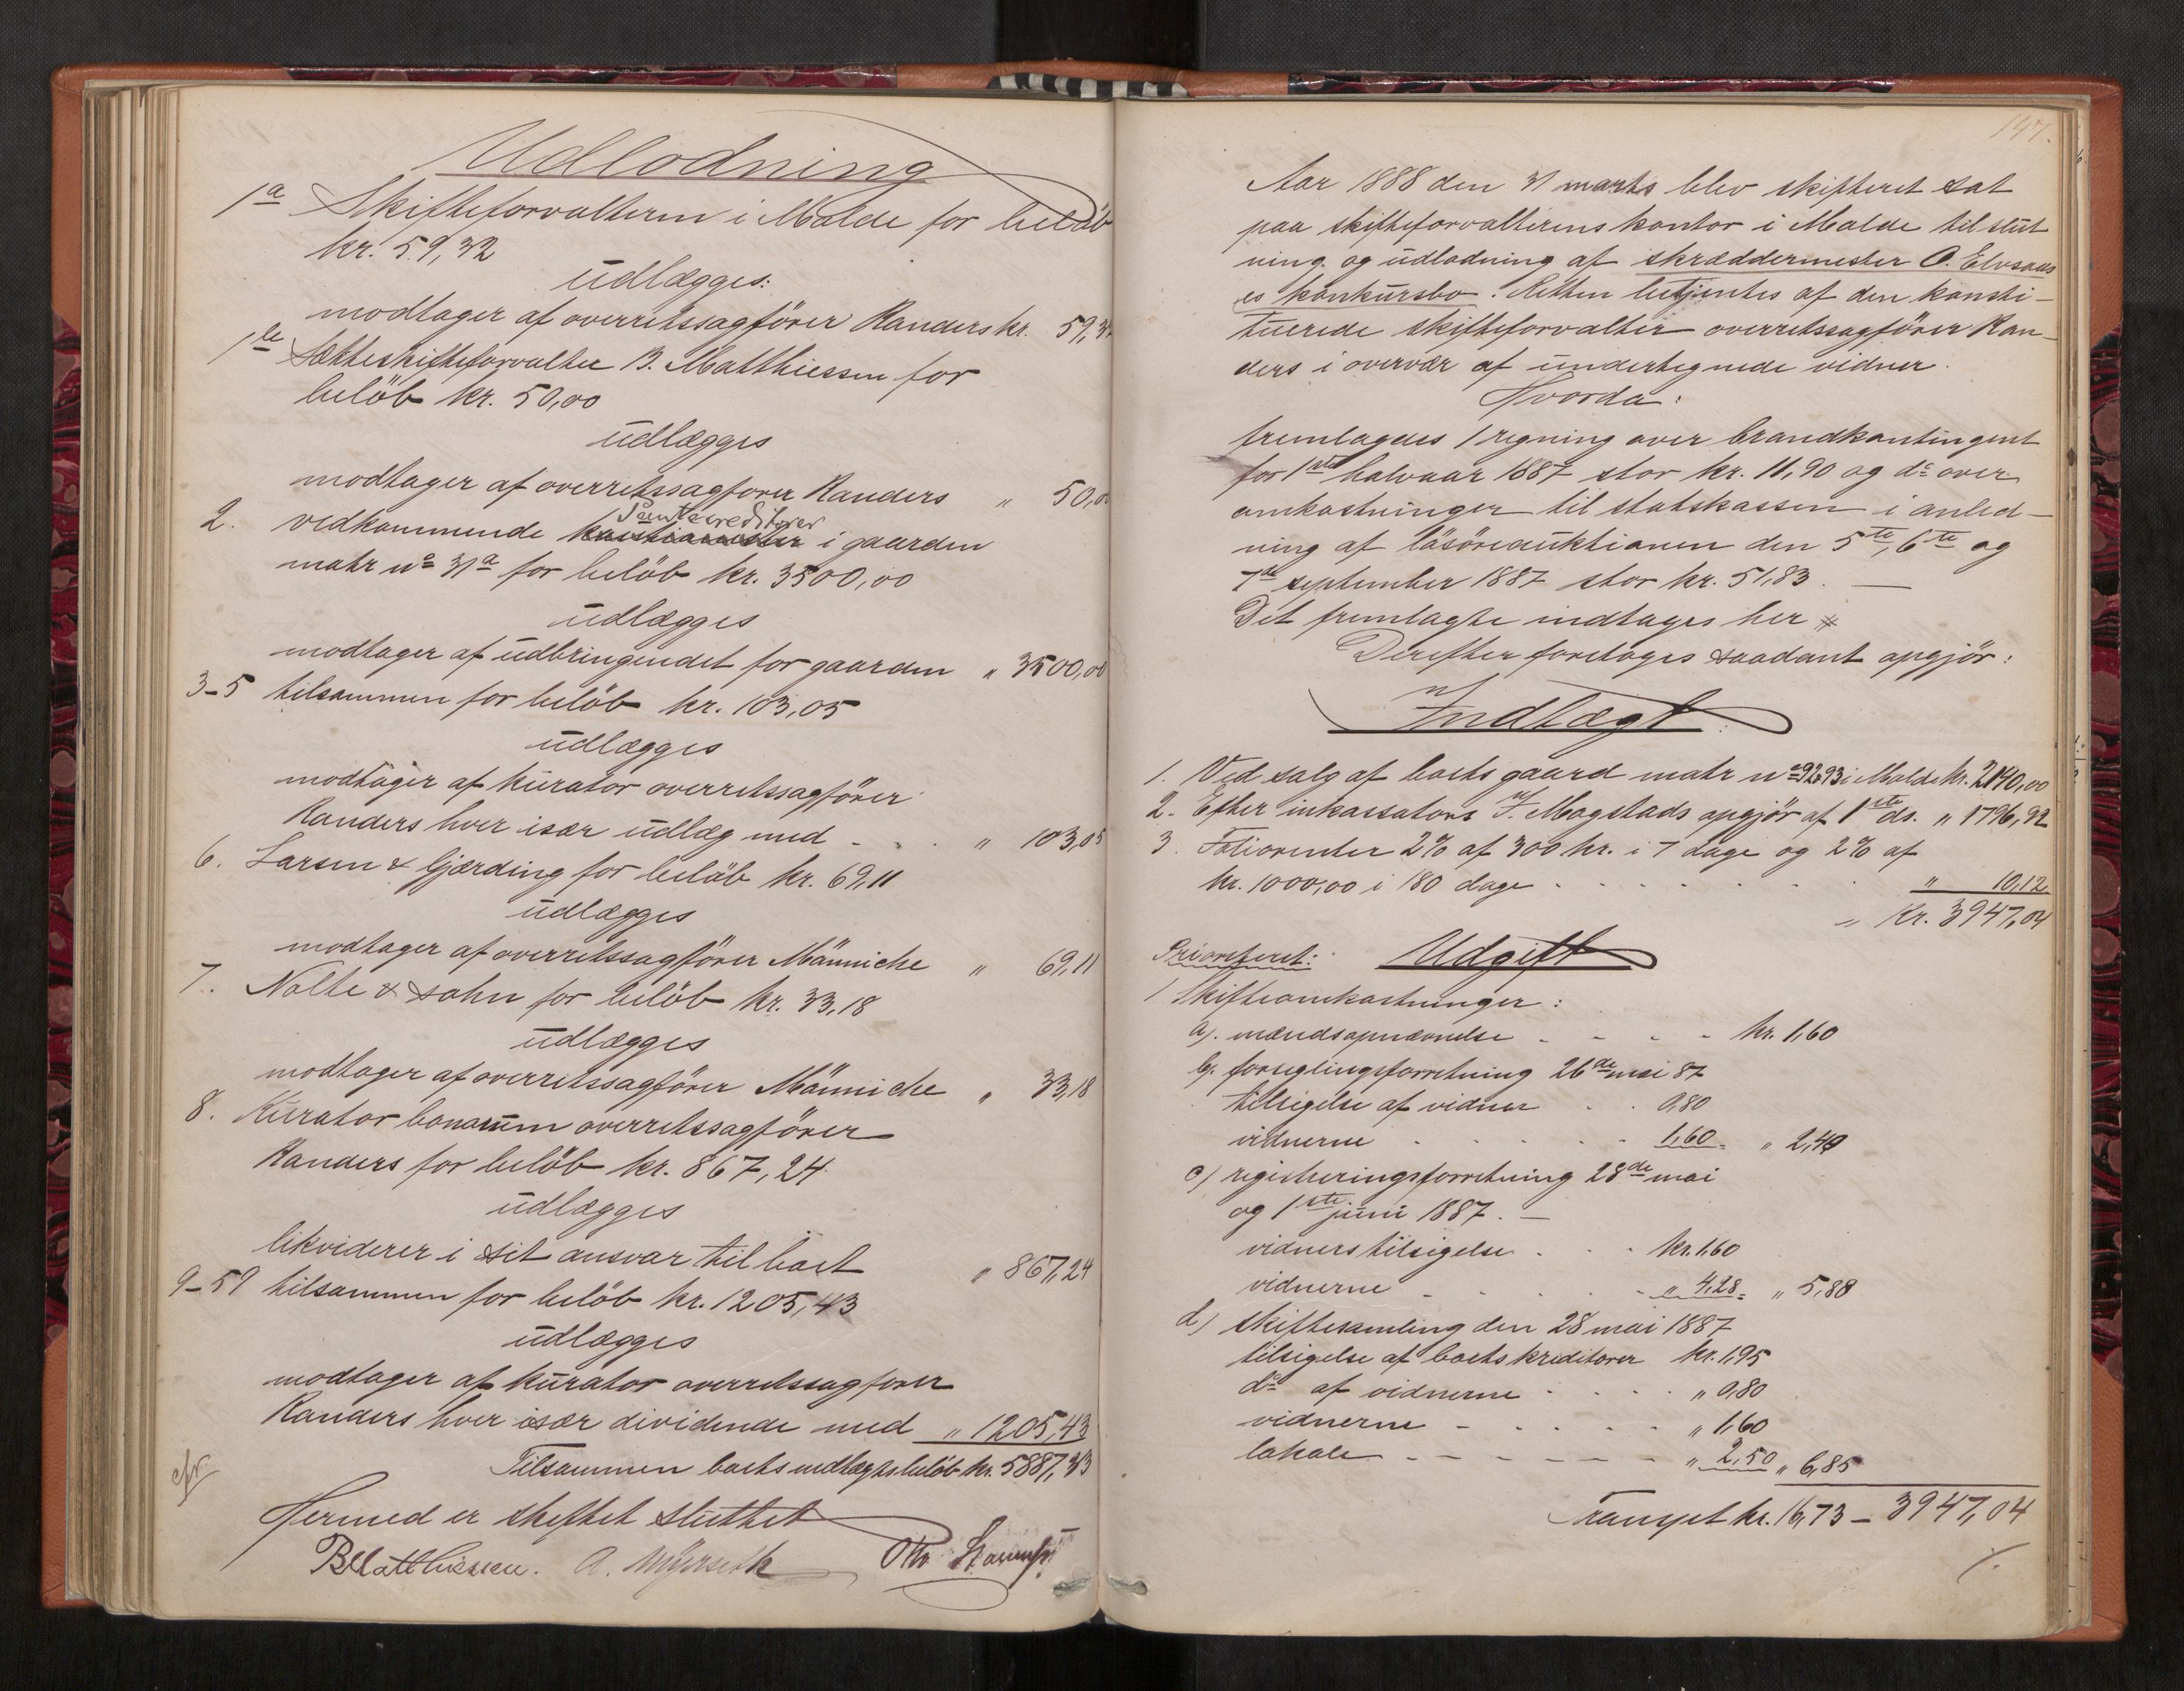 Udlodning
1a Skifteforvalteren i Molde for beløb
kr. 59,32
udlægges:
modtager af overretssagfører Randers kr. 59,32
1b Sætteskifteforvalter B. Matthiessen for
beløb kr. 50,00
udlægges
modtager af overretssagfører Randers " 50,00
Pantecreditorer
2. vedkommende i gaarden
matr no 31a for beløb kr. 3500,00
udlægges
modtager af udbringendet for gaarden " 3500,00
3-5 tilsammen for beløb kr. 103,05
udlægges
modtager af kurator overretssagfører
Randers hver især udlæg med - . . " 103,05
6. Larsen & Gjerding for beløb kr. 69,11
udlægges
modtager af overretssagfører Männiche " 69,11
7. Nolte & sohn for beløb kr. 33,18
udlægges
modtager af overretssagfører Männiche " 33,18
8. Kurator bonorum overretssagfører
Randers for beløb kr. 867,24
udlægges
likviderer i sit ansvar til boet " 867,24
9-59 tilsammen for beløb kr. 1205,43
udlægges
modtager af kurator overretssagfører
Randers hver især dividende med " 1205,43
Tilsammen boets indtægtsbeløb kr. 5887,33
cfr
Hermed er skiftet sluttet
BMatthiessen. A. Myrseth Otto
147.
Aar 1888 den 31 marts blev skifteret sat
paa skifteforvalterens kontor i Molde til slut
ning og udlodning af skræddermester O. Elvsaas
es konkursbo. Retten betjentes af den konsti-
tuerede skifteforvalter overretssagfører Ran-
ders i overvær af undertegnede vidner.
Hvorda:
fremlagdes 1 regning over brandkontingent
for 1ste halvaar 1887 stor kr. 11,90 og do over
omkostninger til statskassen i anled-
ning af løsøreauktionen den 5te, 6te og
7de september 1887 stor kr. 51,83. —
Det fremlagte indtages her #
Derefter foretoges saadant opgjør:
Indtægt.
1. Ved salg af boets gaard matr no 92 93 i Molde kr. 2140,00
2. Efter inkassators J. Mogstads opgjør af 1ste ds. " 1796,92
3. Foliorenter 2% af 300 kr. i 7 dage og 2% af
kr. 1000,00 i 180 dage . . . . . . " 10,12
" Kr. 3947,04
Prioriteret: Udgift
1 Skifteomkostninger:
a). mændsopnævnelse - - - - kr. 1,60
b). forseglingsforretning 26de mai 87
tilsigelse af vidner . . 0,80
vidnerne . . . . . 1,60 = " 2,40
c) registreringsforretning 28de mai
og 1ste juni 1887. —
vidners tilsigelse . . . kr. 1,60
vidnerne - . . . . " 4,28 = " 5,88
d) skiftesamling den 28 mai 1887
tilsigelse af boets kreditorer kr. 1,95
do af vidnerne . . . . " 0,80
vidnerne - . . . . . " 1,60
lokale - - - - - - - " 2,50 " 6,85
Transpet kr. 16,73 - 3947,04
./.